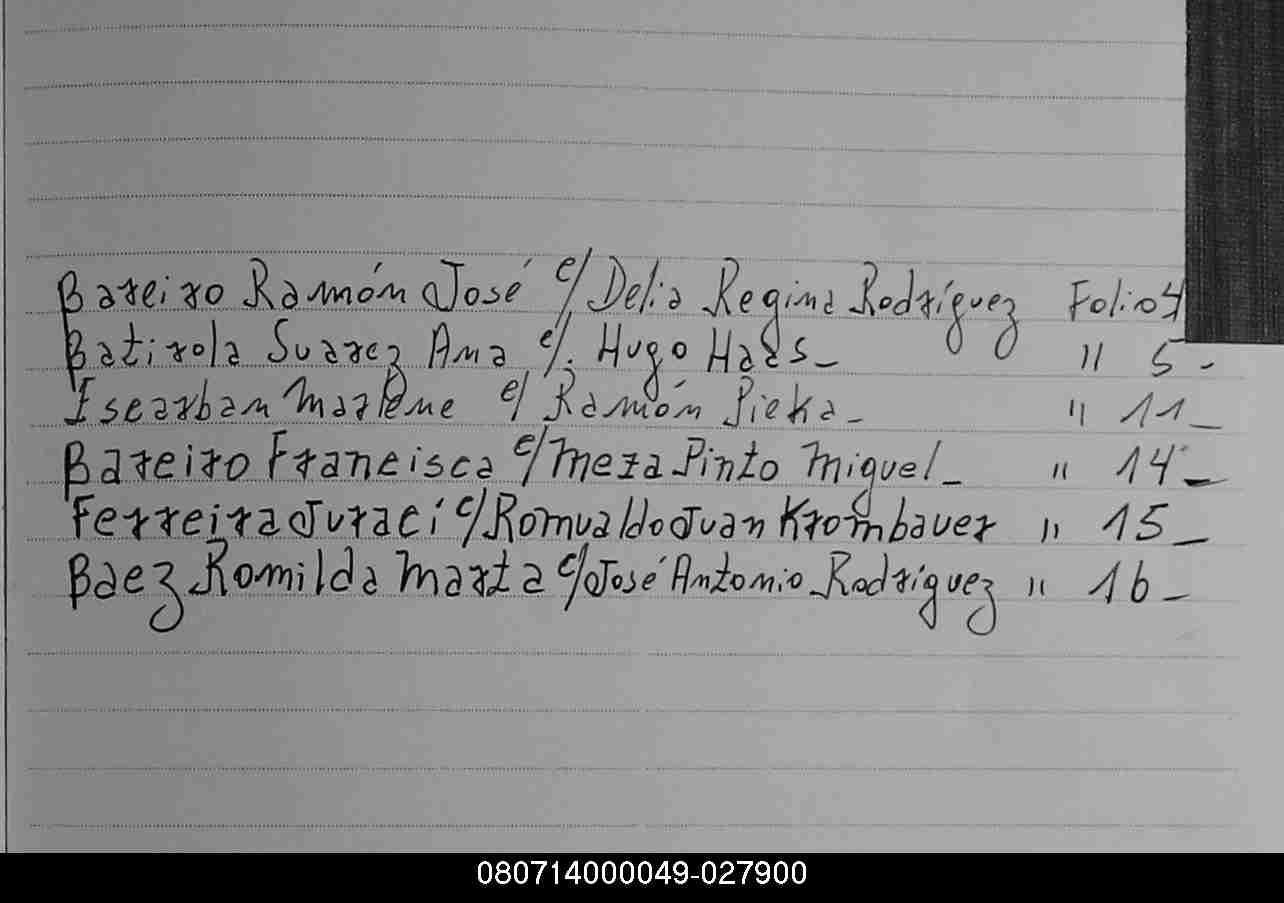 Bareiro Ramón José c/ Delia Regina Rodríguez Folio 4
Batirola Suarez Ana c/. Hugo Haas_ " 5 -
Iscarban Marlene c/ Ramón Pieka_ " 11_
Bareiro Francisca c/ Meza Pinto Miguel_ " 14_
Ferreira Juraci c/ Romualdo Juan Krombauer " 15_
Baez Romilda Marta c/ José Antonio Rodriguez " 16_
080714000049-027900